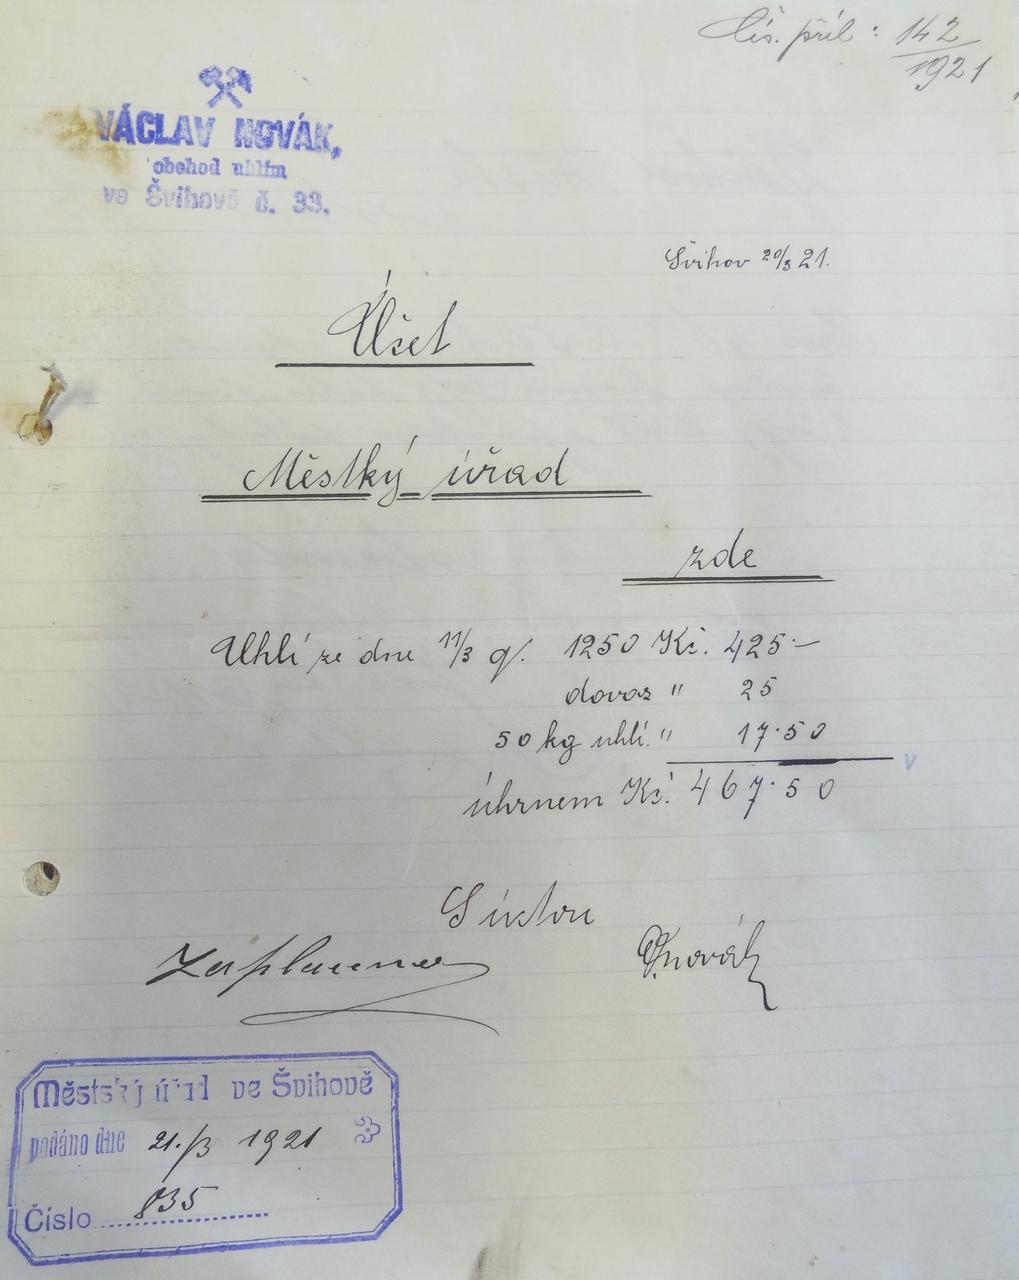 Čís. příl: 142/1921
VÁCLAV NOVÁK,
obchod uhlím
ve Švihově č. 33.
Švihov 20/3 21.
Účet
Městký úřad
zde
Uhlí ze dne 11/3 q. 1250 Kč. 425.—
dovoz " 25
50 kg uhlí. " 17.50
úhrnem Kč. 467.50
S úctou
Zaplaceno
V. Novák
Městský úřad ve Švihově
podáno dne 21./3 1921
Číslo 835